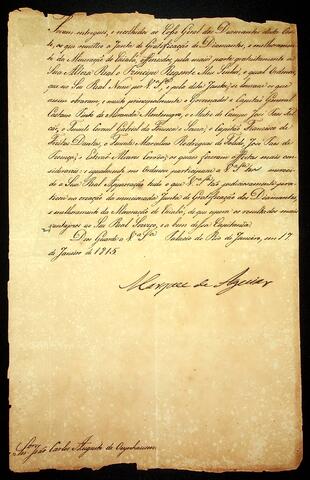 Foram entregues, e recolhidos ao Cofre Geral dos Diamantes desta Corte, os que remetteo a Junta de Gratificação de Diamantes, e melhoramento
da Mineração do Cuiabá, offerecidos pela maior parte gratuitamente a
Sua Alteza Real o Principe Regente Meu Senhor, o qual Ordena,
que no Seu Real Nome por V. S.ª e pela dita Junta, se louvem os que
assim obraram, e muito principalmente o Governador e Capitão General
Caetano Pinto de Miranda Montenegro, e o Mestre de Campo José Paes
o Tenente Coronel Gabriel da Fonseca e Souza, o Capitão Francisco de
o Tenente Marcelino Rodrigues de Toledo, José Paes de
e Estevão Alvares os quaes foram as offertas mais
e igualmente me Ordena participar a V. S.ª ter merecido
a Sua Real Approvação tudo o que V. S.ª tão
na creação da mencionada Junta de Gratificação dos Diamantes,
e melhoramento da Mineração do Cuiabá, de que espera os resultados mais
vantajosos ao Seu Real Serviço, e a bem dessa Capitania.
Deos Guarde a V. S.ª Palacio do Rio de Janeiro, em 17
de Janeiro de 1815.
Marquez de Aguiar
Snr. João Carlos Augusto de Oeynhausen